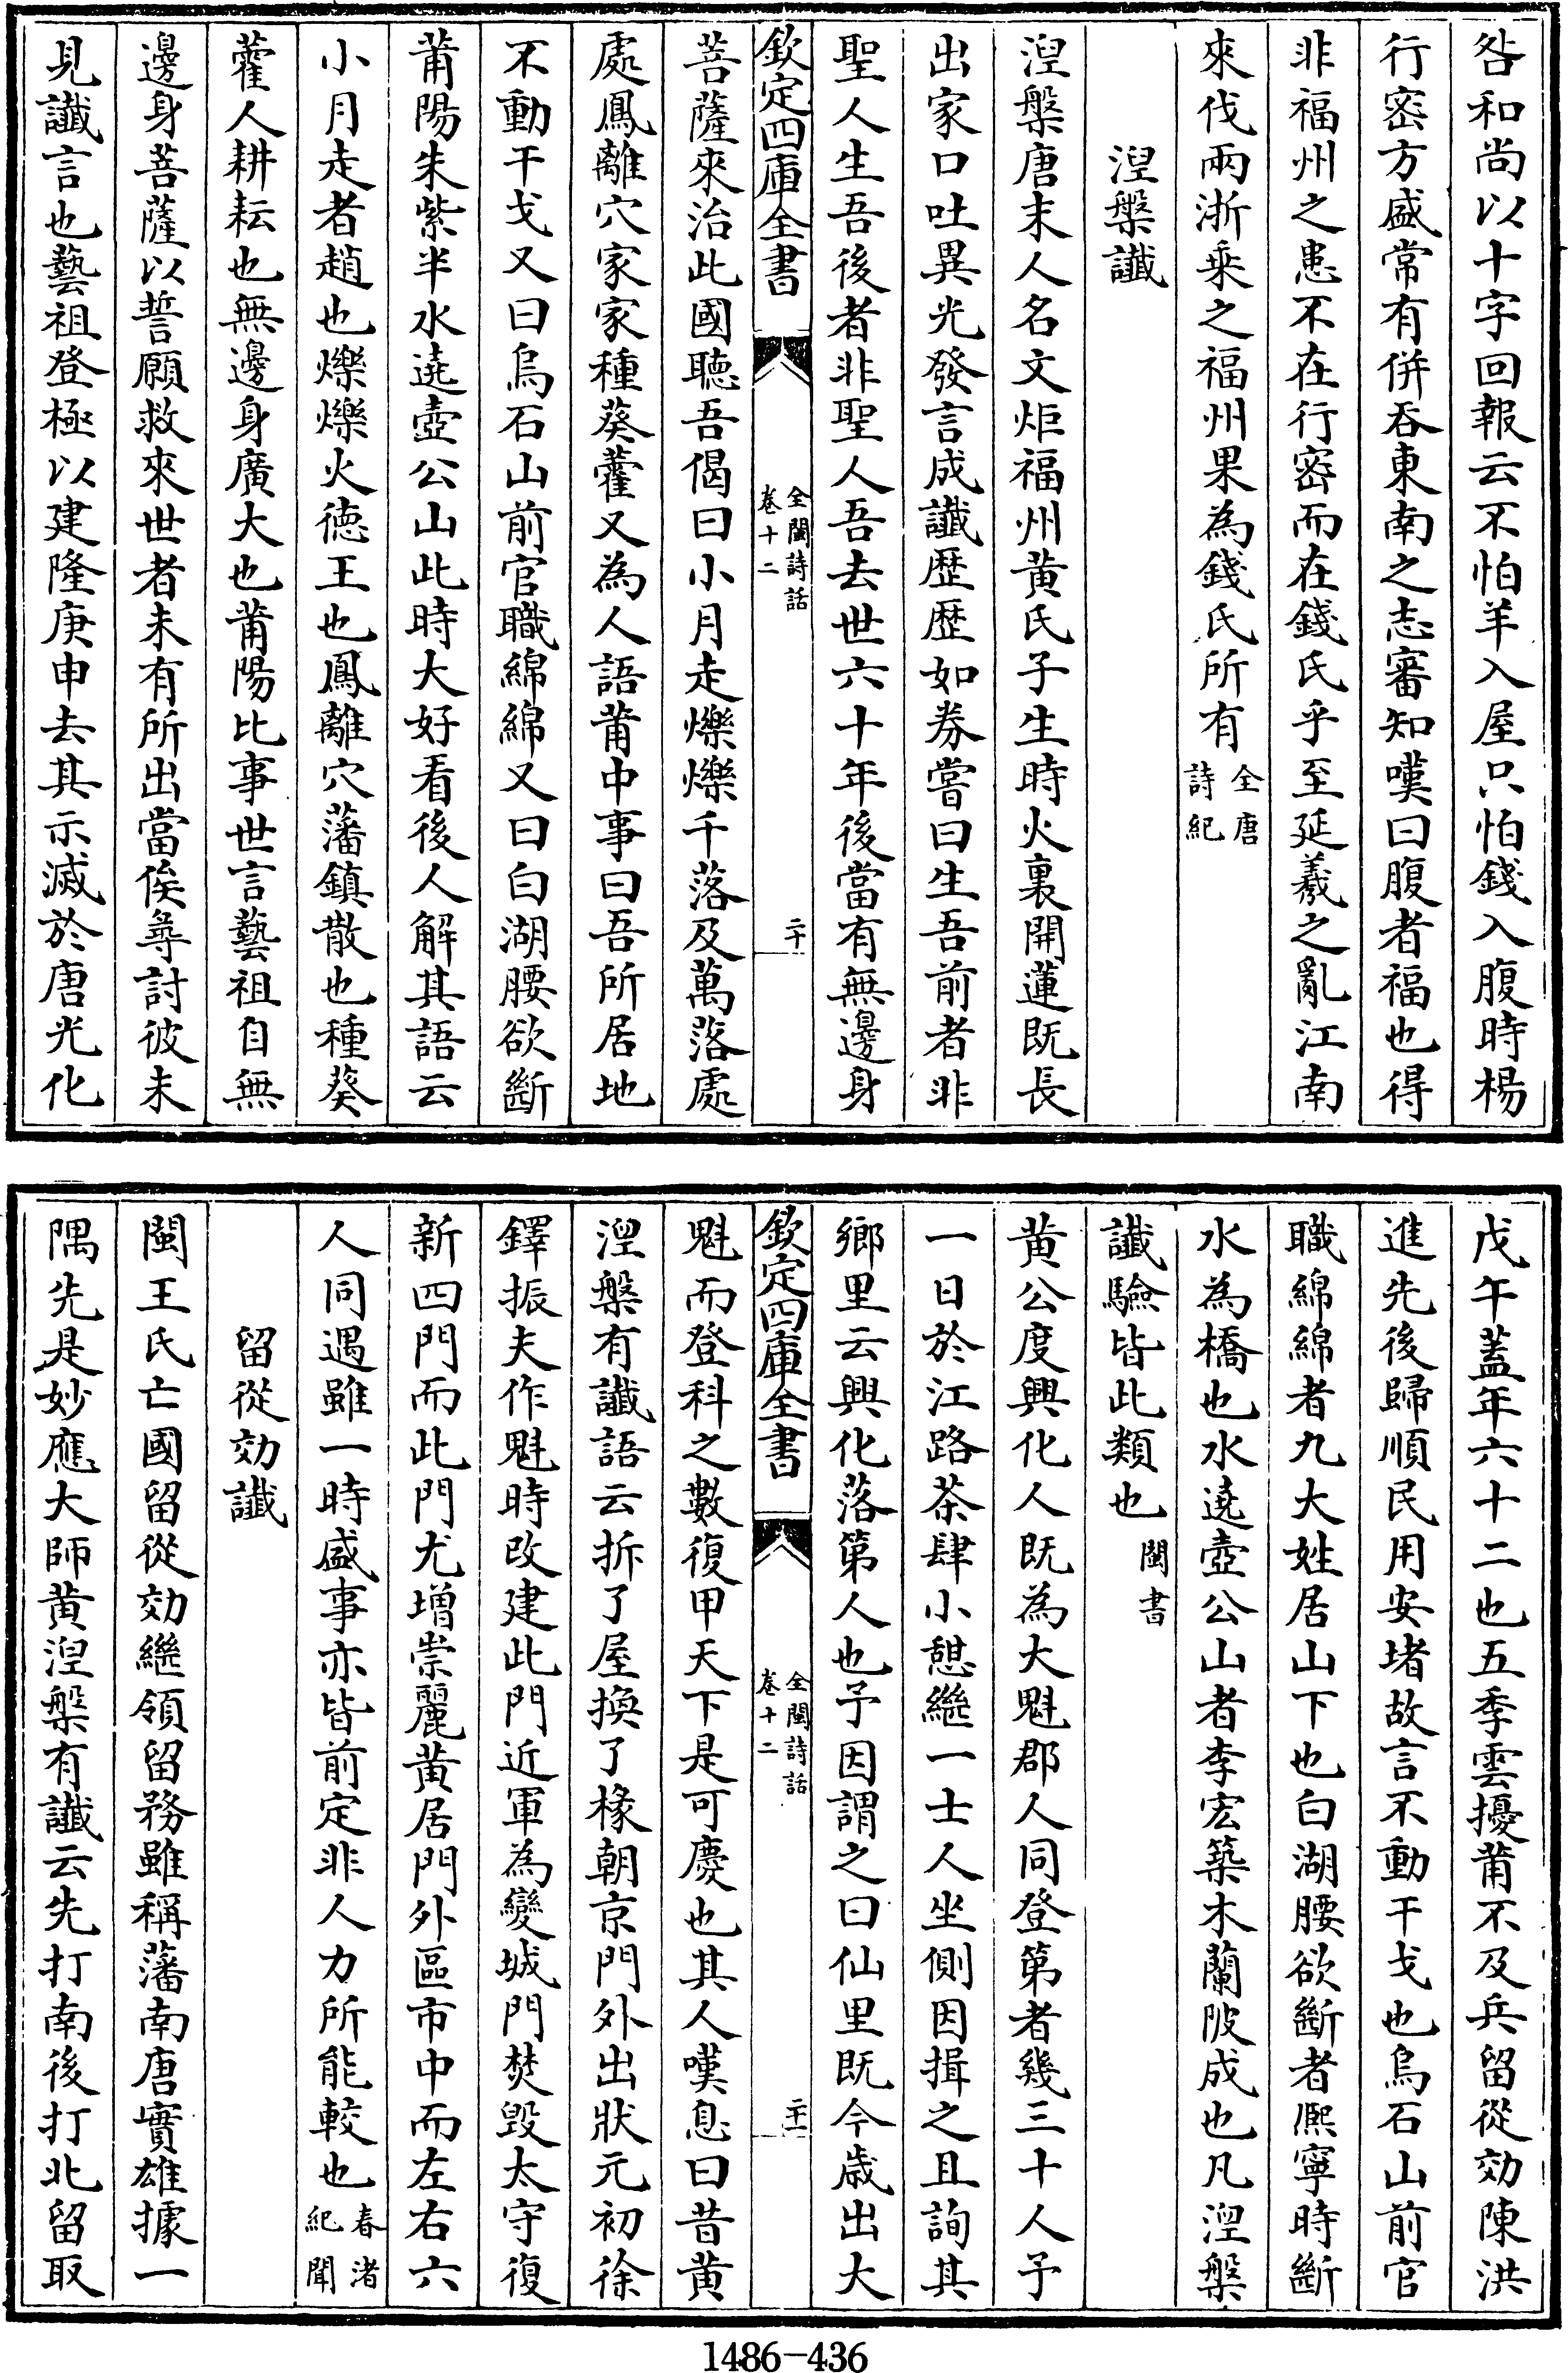 咎和尚以十字回報云不怕羊入屋只怕錢入腹時楊
行密方盛常有併吞東南之志審知嘆曰腹者福也得
非福州之患不在行密而在錢氏乎至延羲之亂江南
來伐兩浙乘之福州果為錢氏所有全唐詩紀
湼槃讖
湼槃唐末人名文炬福州黄氏子生時火裏開蓮既長
出家口吐異光發言成讖歴歴如券嘗曰生吾前者非
聖人生吾後者非聖人吾去世六十年後當有無邊身
欽定四庫全書
全閩詩話
卷十二
二十
菩薩來治此國聽吾偈曰小月走爍爍千落及萬落處
處鳳離穴家家種葵藿又為人語莆中事曰吾所居地
不動干戈又曰烏石山前官職綿綿又曰白湖腰欲斷
莆陽朱紫半水遶壺公山此時大好看後人解其語云
小月走者趙也爍爍火德王也鳳離穴藩鎮散也種葵
藿人耕耘也無邊身廣大也莆陽比事世言藝祖自無
邊身菩薩以誓願救來世者未有所出當俟尋討彼未
見讖言也藝祖登極以建隆庚申去其示滅於唐光化
戊午蓋年六十二也五季雲擾莆不及兵留從効陳洪
進先後歸順民用安堵故言不動干戈也烏石山前官
職綿綿者九大姓居山下也白湖腰欲斷者熈寧時斷
水為橋也水遶壺公山者李宏築木蘭陂成也凡湼槃
讖驗皆此類也閩書
黄公度興化人既為大魁郡人同登第者幾三十人予
一日於江路茶肆小憇繼一士人坐側因揖之且詢其
鄉里云興化落第人也予因謂之曰仙里既今歳出大
欽定四庫全書
全閩詩話
卷十二
二十一
魁而登科之數復甲天下是可慶也其人嘆息曰昔黄
湼槃有讖語云拆了屋換了椽朝京門外出狀元初徐
鐸振夫作魁時改建此門近軍為變城門焚毁太守復
新四門而此門尤增崇麗黄居門外區市中而左右六
人同遇雖一時盛事亦皆前定非人力所能較也春渚紀聞
留從効讖
閩王氏亡國留從効繼領留務雖稱藩南唐實雄據一
隅先是妙應大師黄湼槃有讖云先打南後打北留取
1486-436